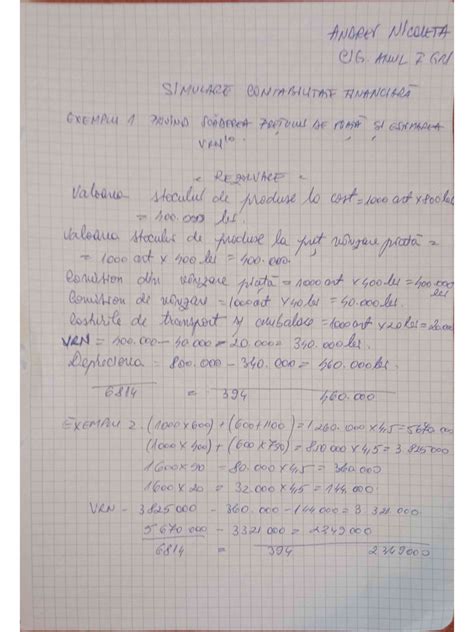 ANDREI NICOLETA
CIG ANUL I GR I
SIMULARE CONTABILITATE FINANCIARĂ
EXEMPLU 1 PRIVIND SCĂDEREA PREȚULUI DE PIAȚĂ ȘI ESTIMAREA
VRN
- REZOLVARE -
Valoarea stocului de produse la cost = 1000 art × 800 lei
= 400.000 lei.
Valoarea stocului de produse la preț vânzare piată =
= 1000 art × 400 lei = 400.000.
Comision din vânzare piată = 1000 art × 400 lei = 400.000 lei
Comision de vânzare = 1000 art × 40 lei = 40.000 lei.
Costurile de transport și ambalare = 1000 art × 20 lei = 20.000
VRN = 400.000 - 40.000 = 20.000 = 340.000 lei.
Deprecierea = 800.000 - 340.000 = 460.000 lei.
6814 = 394 460.000
EXEMPLU 2. (1000 × 600) + (600 + 1100) = 1260.000 × 4,5 = 5670.000
(1000 × 400) + (600 × 750) = 850.000 × 4,5 = 3.825.000
1600 × 50 = 80.000 × 4,5 = 360.000
1600 × 20 = 32.000 × 4,5 = 144.000
VRN - 3825 000 - 360.000 - 144 000 = 3.321.000
5.670.000 - 3321 000 = 2349000
6814 = 394 2349000